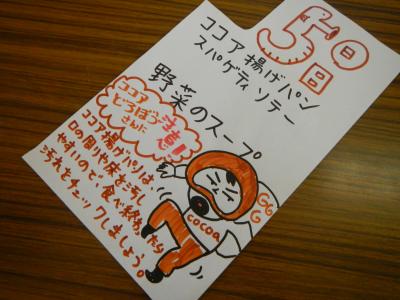 5日
回
ココア揚げパン
スパゲティソテー
野菜のスープ
ココア
どろぼう
さんに
注意!
ココア揚げパンは、
口の周りや床を汚し
やすいので、食べ終わったら
汚れをチェックしましょう。
cocoa
GG
G